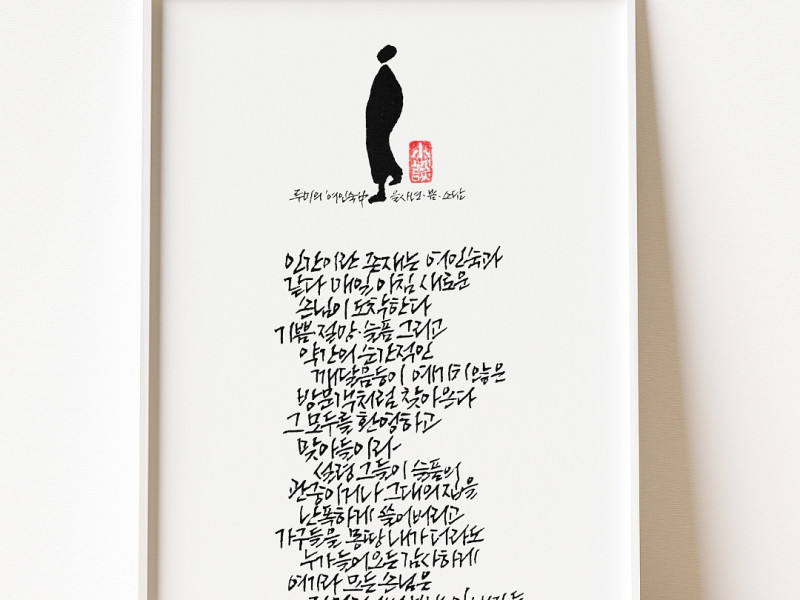 루미의 '여인숙'
인간이란 존재는 여인숙과
같다 매일 아침 새로운
손님이 도착한다
기쁨·절망·슬픔 그리고
약간의 순간적인
깨달음등이 예기치않은
방문객처럼 찾아온다
그 모두를 환영하고
맞아들이라
설령 그들이 슬픔의
관중이거나 그대의 집을
난폭하게 쓸어버리고
가구들을 몽땅 내가더라도
누가들어오든 감사하게
여기라 모든 손님은